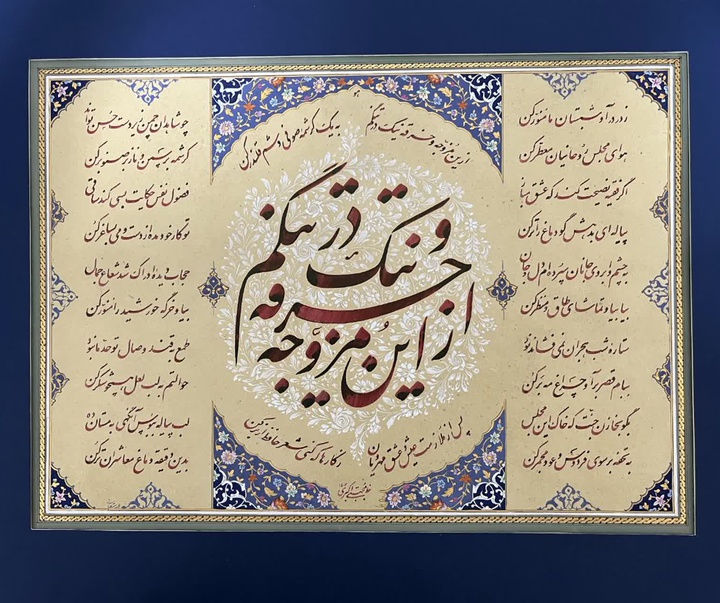 ز در درآ و شبستان ما منور کن
هوای مجلس روحانیان معطر کن
اگر فقیه نصیحت کند که عشق مباز
پیاله‌ای بدهش گو دماغ را تر کن
به چشم و ابروی جانان سپرده‌ام دل و جان
بیا بیا و تماشای طاق و منظر کن
ستاره شب هجران نمی‌فشاند نور
ببام قصر برآ و چراغ مه بر کن
بگو بخازن جنت که خاک این مجلس
به تحفه بر سوی فردوس و عود مجمر کن
ازین مزوجه و خرقه نیک در تنگم
به یک کرشمه صوفی وشم قلندر کن
از این مزوّجه
خرقه
و نیک
در تنگم
چو شاهدان چمن زیردست حسن تواند
کرشمه بر سمن و ناز بر صنوبر کن
فضول نفس حکایت بسی کند ساقی
تو کار خود مده از دست و می بساغر کن
حجاب دیده ادراک شد شعاع جمال
بیا و خرگه خورشید را منور کن
طمع به قند وصال تو حد ما نبود
حوالتم به لب لعل همچو شکر کن
لب پیاله ببوس آنگهی به مستان ده
بدین دقیقه دماغ معاشران تر کن
پس از ملازمت عیش و عشق مهرویان
ز کارها که کنی شعر حافظ از بر کن